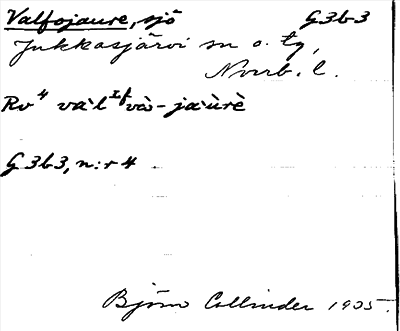 Valfojaure, sjö G3b3
Jukkasjärvi sn o. tg,
Norrb. l.
Rv⁴ và'l^If và - ja'ùrè
G3b3, n:r 4
Björn Collinder 1935.